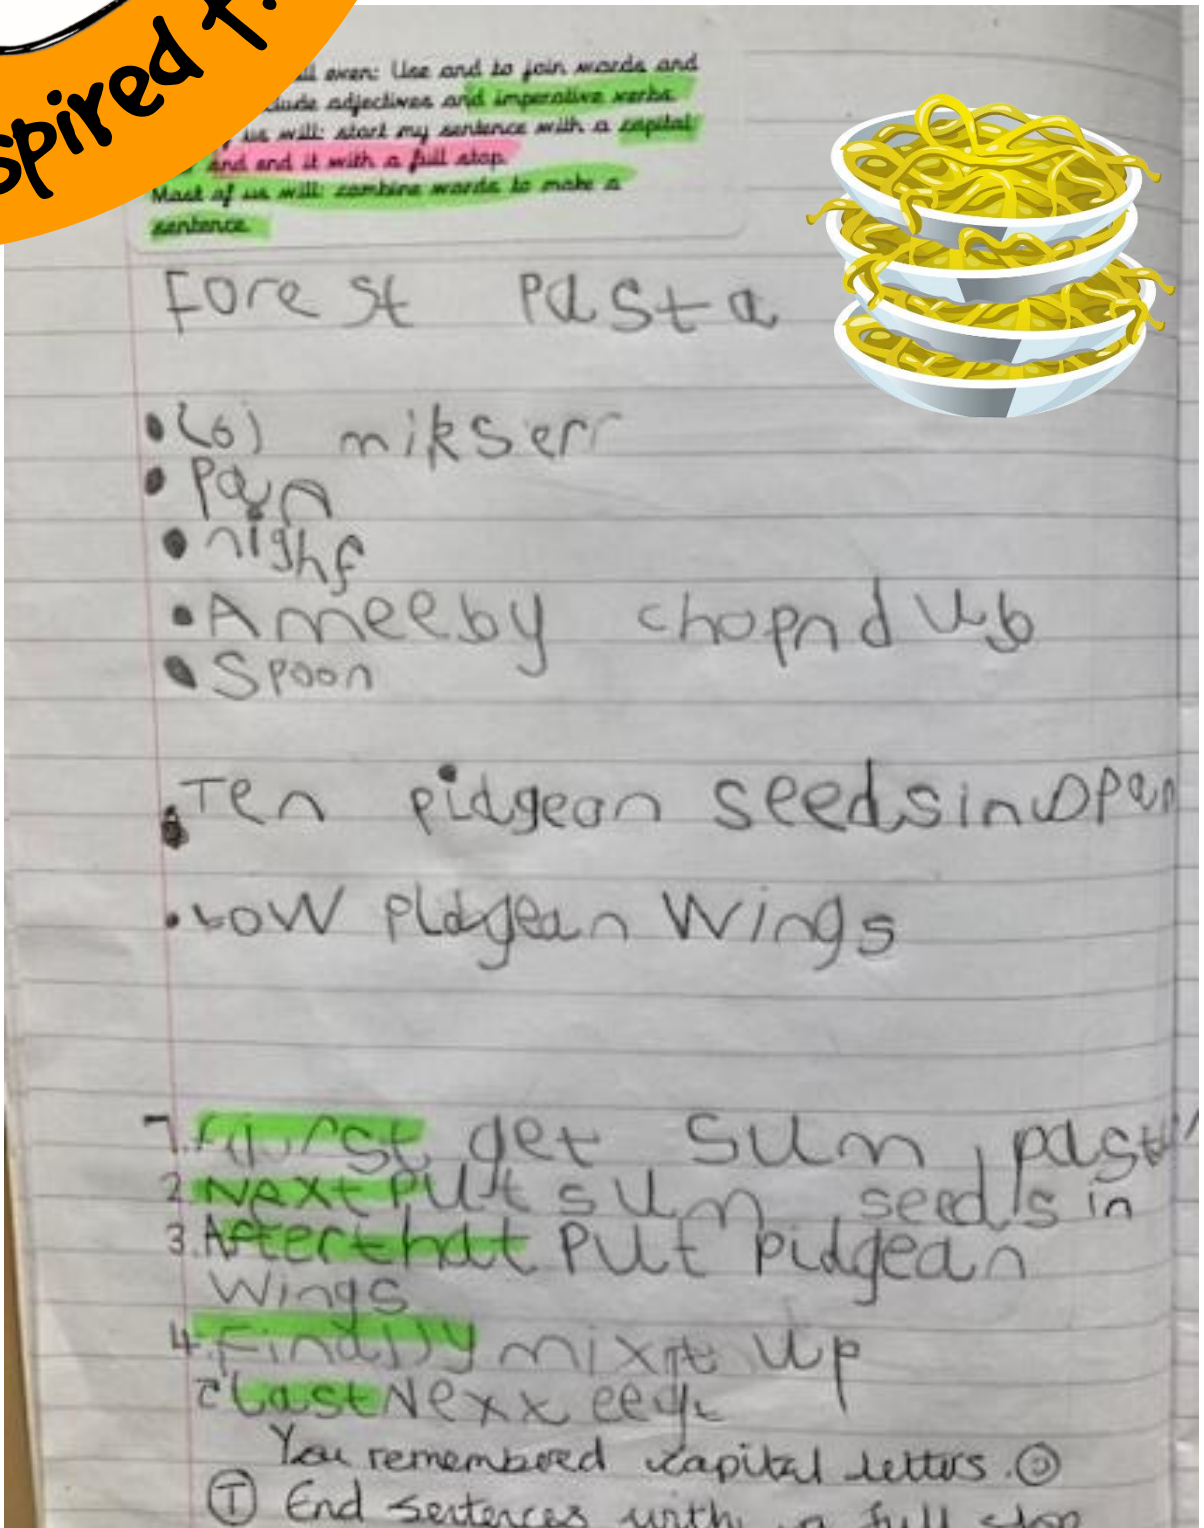 spired t
ll even: Use and to join words and
lude adjectives and imperative verbs.
us will: start my sentence with a capital
and end it with a full stop.
Most of us will: combine words to make a
sentence.
Forest Pasta
• (6) mikserr
• Pan
• nighf
• Ameeby chopnd up
• Spoon
• Ten pidgean seeds in
• pidgean Wings
1. get sum past
2. Next Put sum seeds in
3. After that Put pidgean
Wings
4. Finally mix it up
Last Nexx
You remembered capital letters.
T End sentences with a full stop